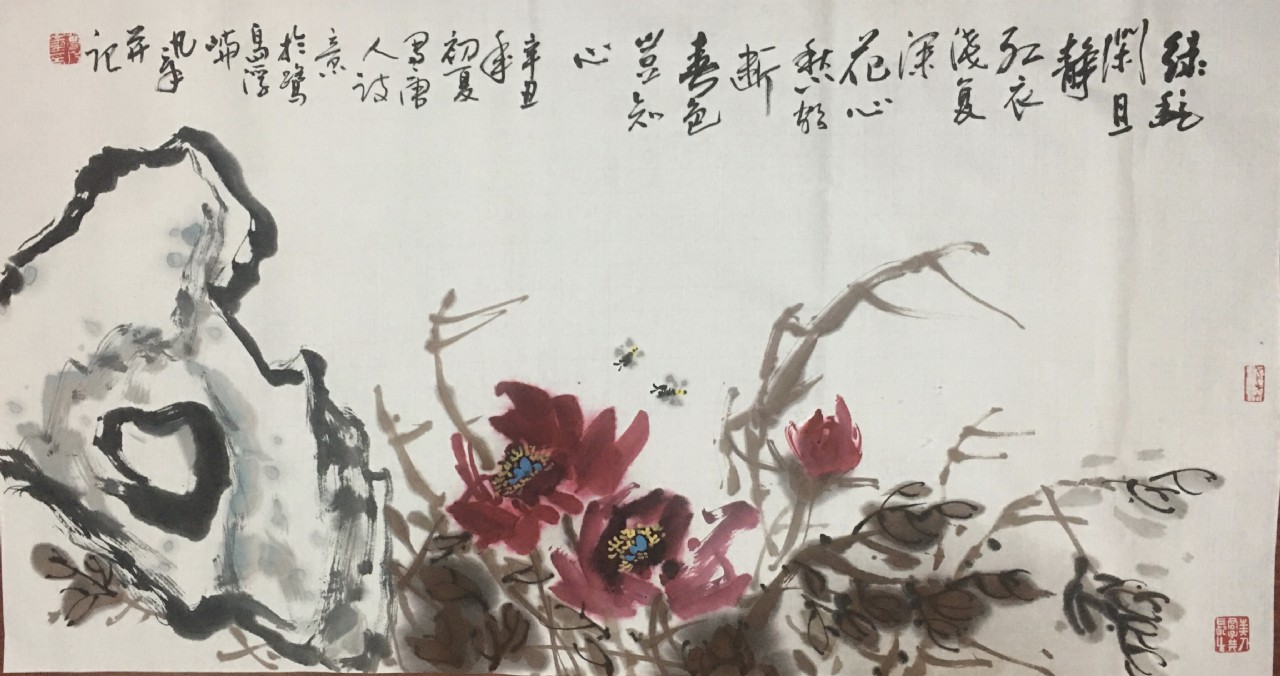 绿艳
闲且
静
红衣
淺复
深
花心
愁欲
断
春色
岂知
心
辛丑
年
初夏
写唐
人诗
意
於鹭
岛浮
并
记